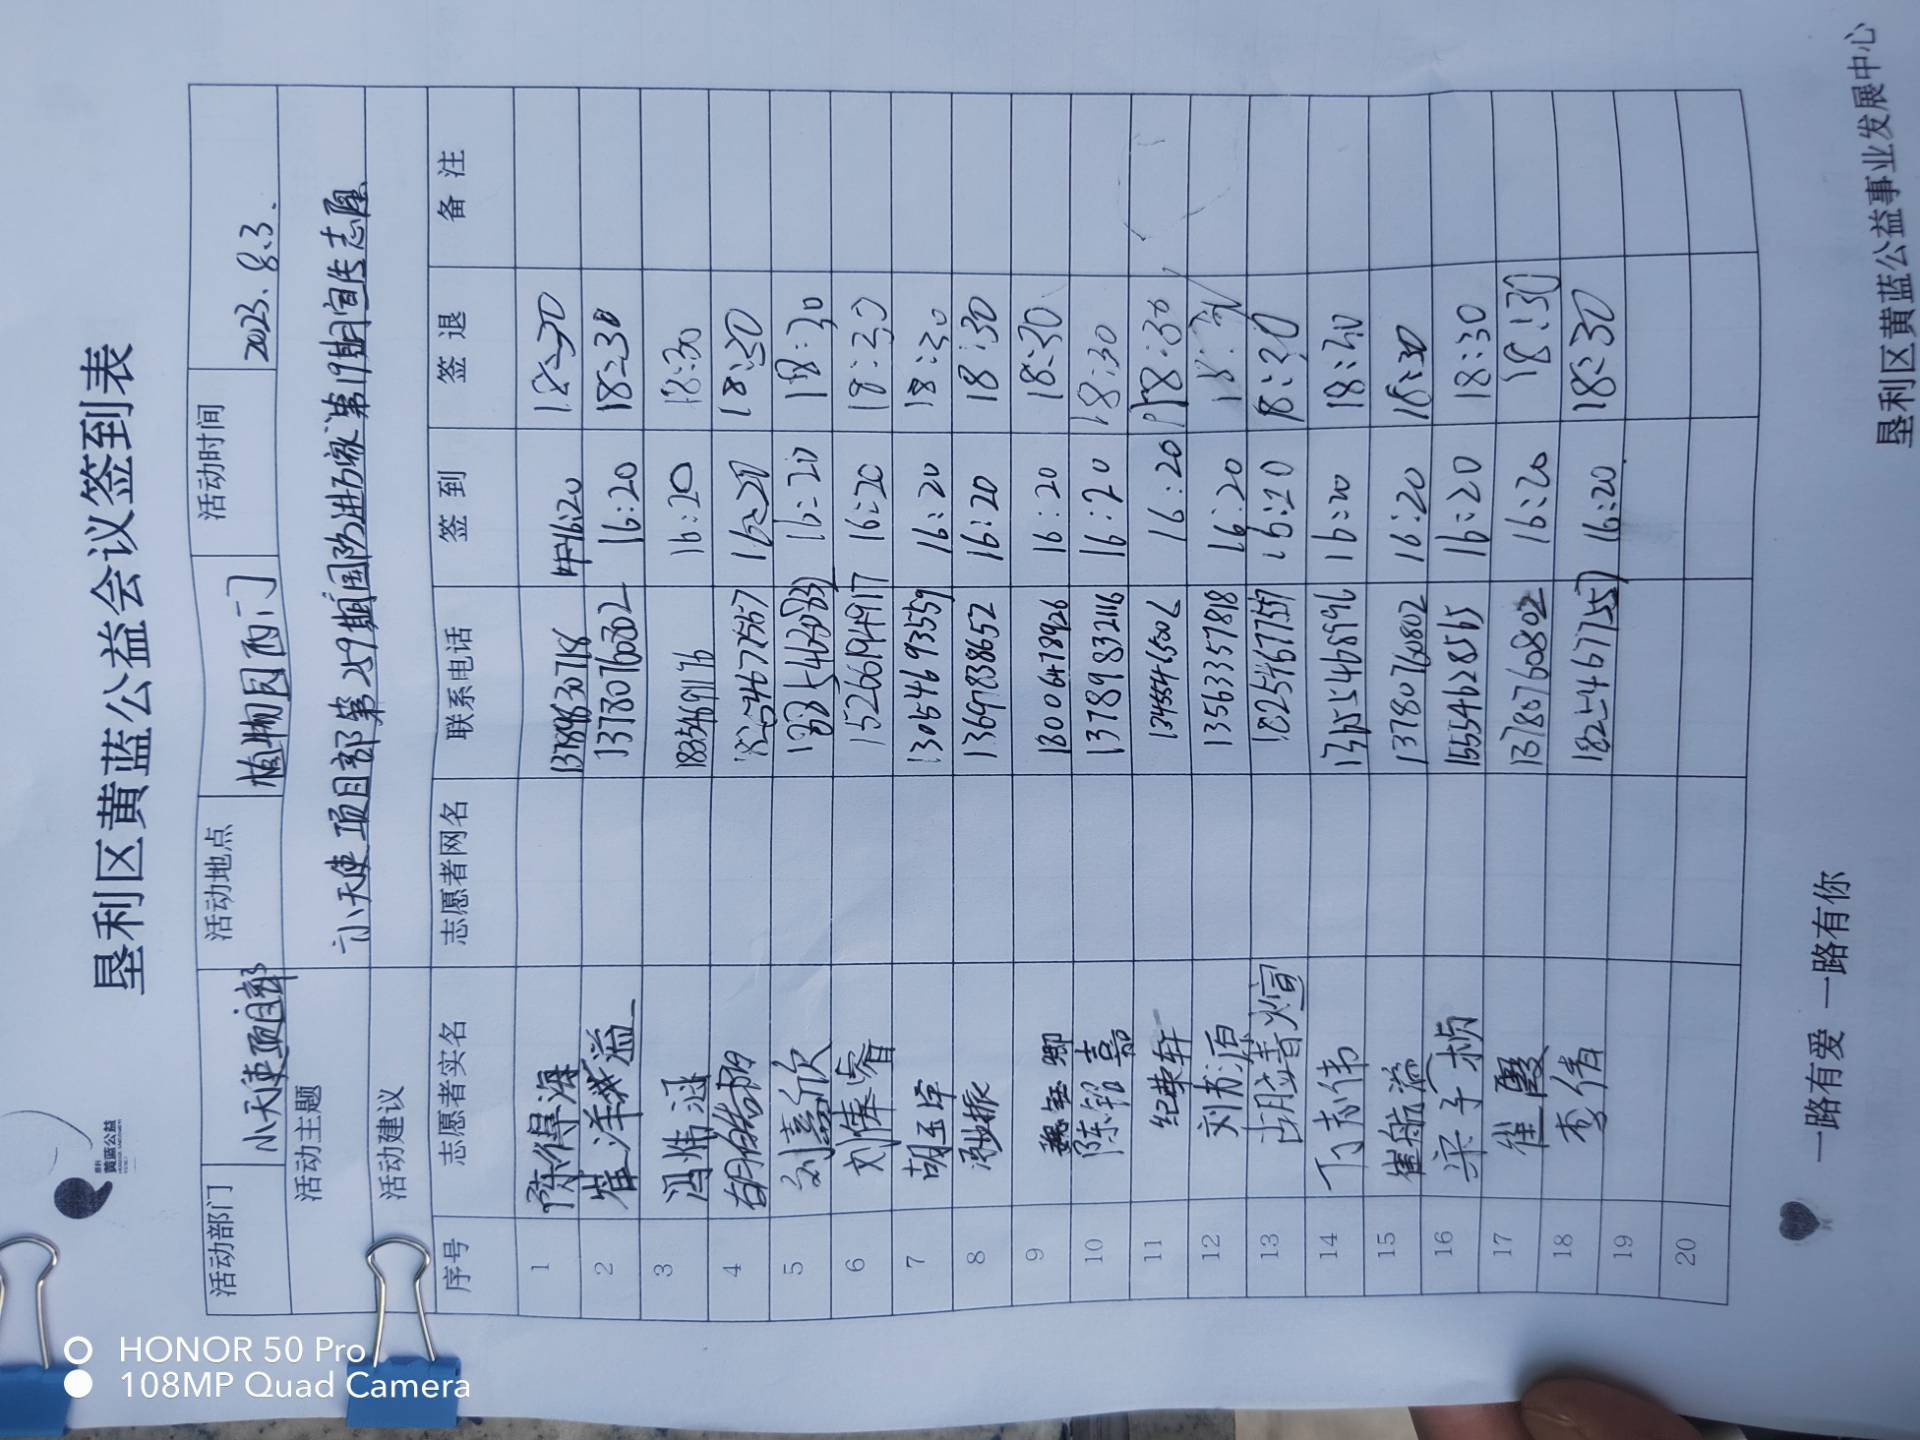 垦利
黄蓝公益
垦利区黄蓝公益会议签到表
活动部门 小天使项目部 活动地点 植物园西门 活动时间 2023.8.3.
活动主题 小天使项目部第259期国防进万家第19期宣传志愿
活动建议
序号 志愿者实名 志愿者网名 联系电话 签到 签退 备注
1 陈得海 16:20 18:30
2 崔洋溢 13780760802 16:20 18:30
3 冯炜涵 18354691176 16:20 18:30
4 18254677557 16:20 18:30
5 刘嘉欣 16:20 18:30
6 刘俸睿 15266194917 16:20 18:30
7 胡玉华 13054693559 16:20 18:30
8 13697838652 16:20 18:30
9 魏钰卿 18006478926 16:20 18:30
10 陈铭嘉 13789832116 16:20 18:30
11 纪荣轩 16:20 18:30
12 刘书洐 13563357818 16:20 18:30
13 胡靖煊 18254677557 16:20 18:30
14 丁志伟 13655468996 16:20 18:30
15 崔航溢 13780760802 16:20 18:30
16 宋子桢 15554628565 16:20 18:30
17 崔霞 13780760802 16:20 18:30
18 李倩 18254677557 16:20 18:30
19
20
一路有爱 一路有你
垦利区黄蓝公益事业发展中心
HONOR 50 Pro
108MP Quad Camera